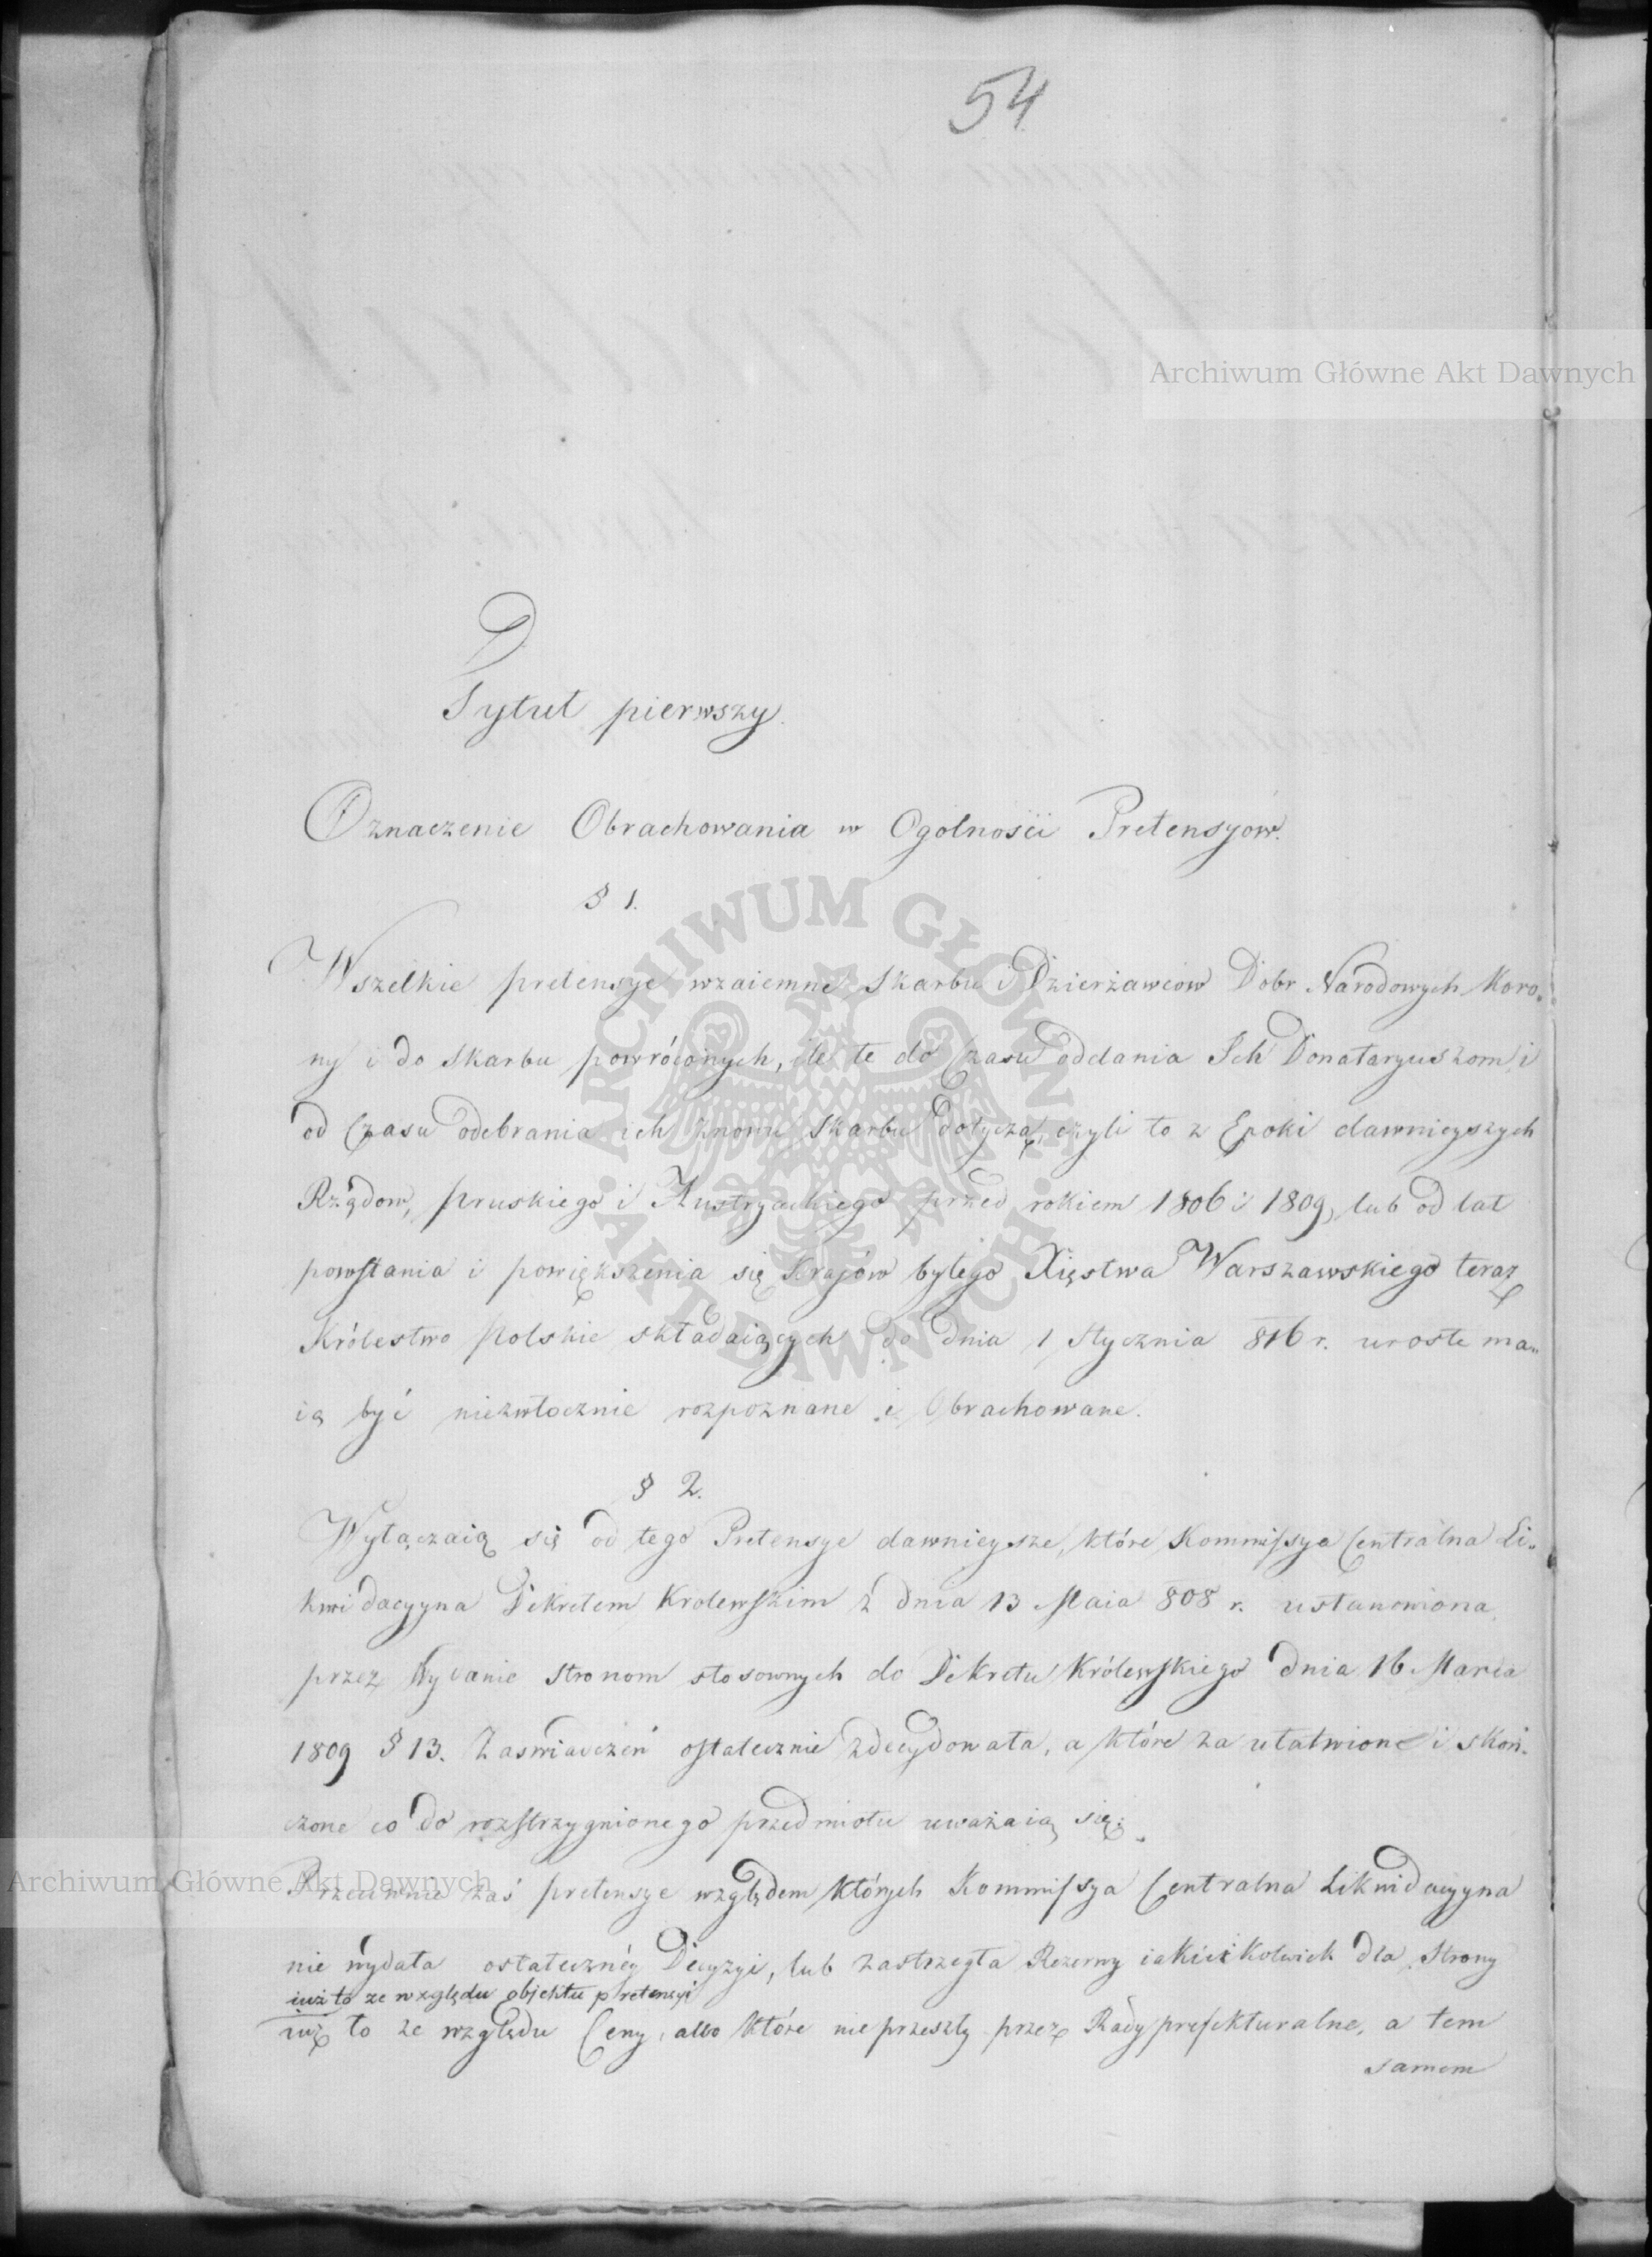 54
Tytuł pierwszy.
Oznaczenie Obrachowania w Ogolności Pretensyow.
§ 1.
Wszelkie pretensye wzaiemne Skarbu i Dzierżawcow Dobr Narodowych Koro„
ny i do Skarbu powróconych, ile te do Czasu oddania Ich Donataryuszom, i
od Czasu odebrania ich znowu Skarbu dotyczą, czyli to z Epoki dawnieyszych
Rządow, Pruskiego i Austryackiego przed rokiem 1806 i 1809, lub od lat
powstania i powiększenia się Krajów byłego Xięstwa Warszawskiego teraz
Królestwo Polskie składaiących do dnia 1 Stycznia 816 r. urosłe ma„
ią być niezwłocznie rozpoznane i Obrachowane.
§ 2.
Wyłączaią się od tego Pretensye dawnieysze, które Kommissya Centralna Li„
kwidacyyna Dekretem Krolewskim z dnia 13 Maia 808 r. ustanowiona,
przez Wydanie Stronom stosownych do Dekretu Królewskiego dnia 16 Marca
1809 § 13. Zaswiadczeń ostatecznie zdecydowała, a które za ułatwione i skoń„
czone co do rozstrzygnionego przedmiotu uważaią się.
Przeciwnie zaś pretensye względem których Kommissya Centralna Likwidacyyna
nie wydała ostateczney Decyzyi, lub zastrzegła Rezerwy iakieikolwiek dla Strony
iuż to ze względu objektu pretensyi
iuż to ze względu Ceny, albo które nie przeszły przez Rady prefekturalne, a tem
samem
Archiwum Główne Akt Dawnych
ARCHIWUM GŁÓWNE AKT DAWNYCH
Archiwum Główne Akt Dawnych